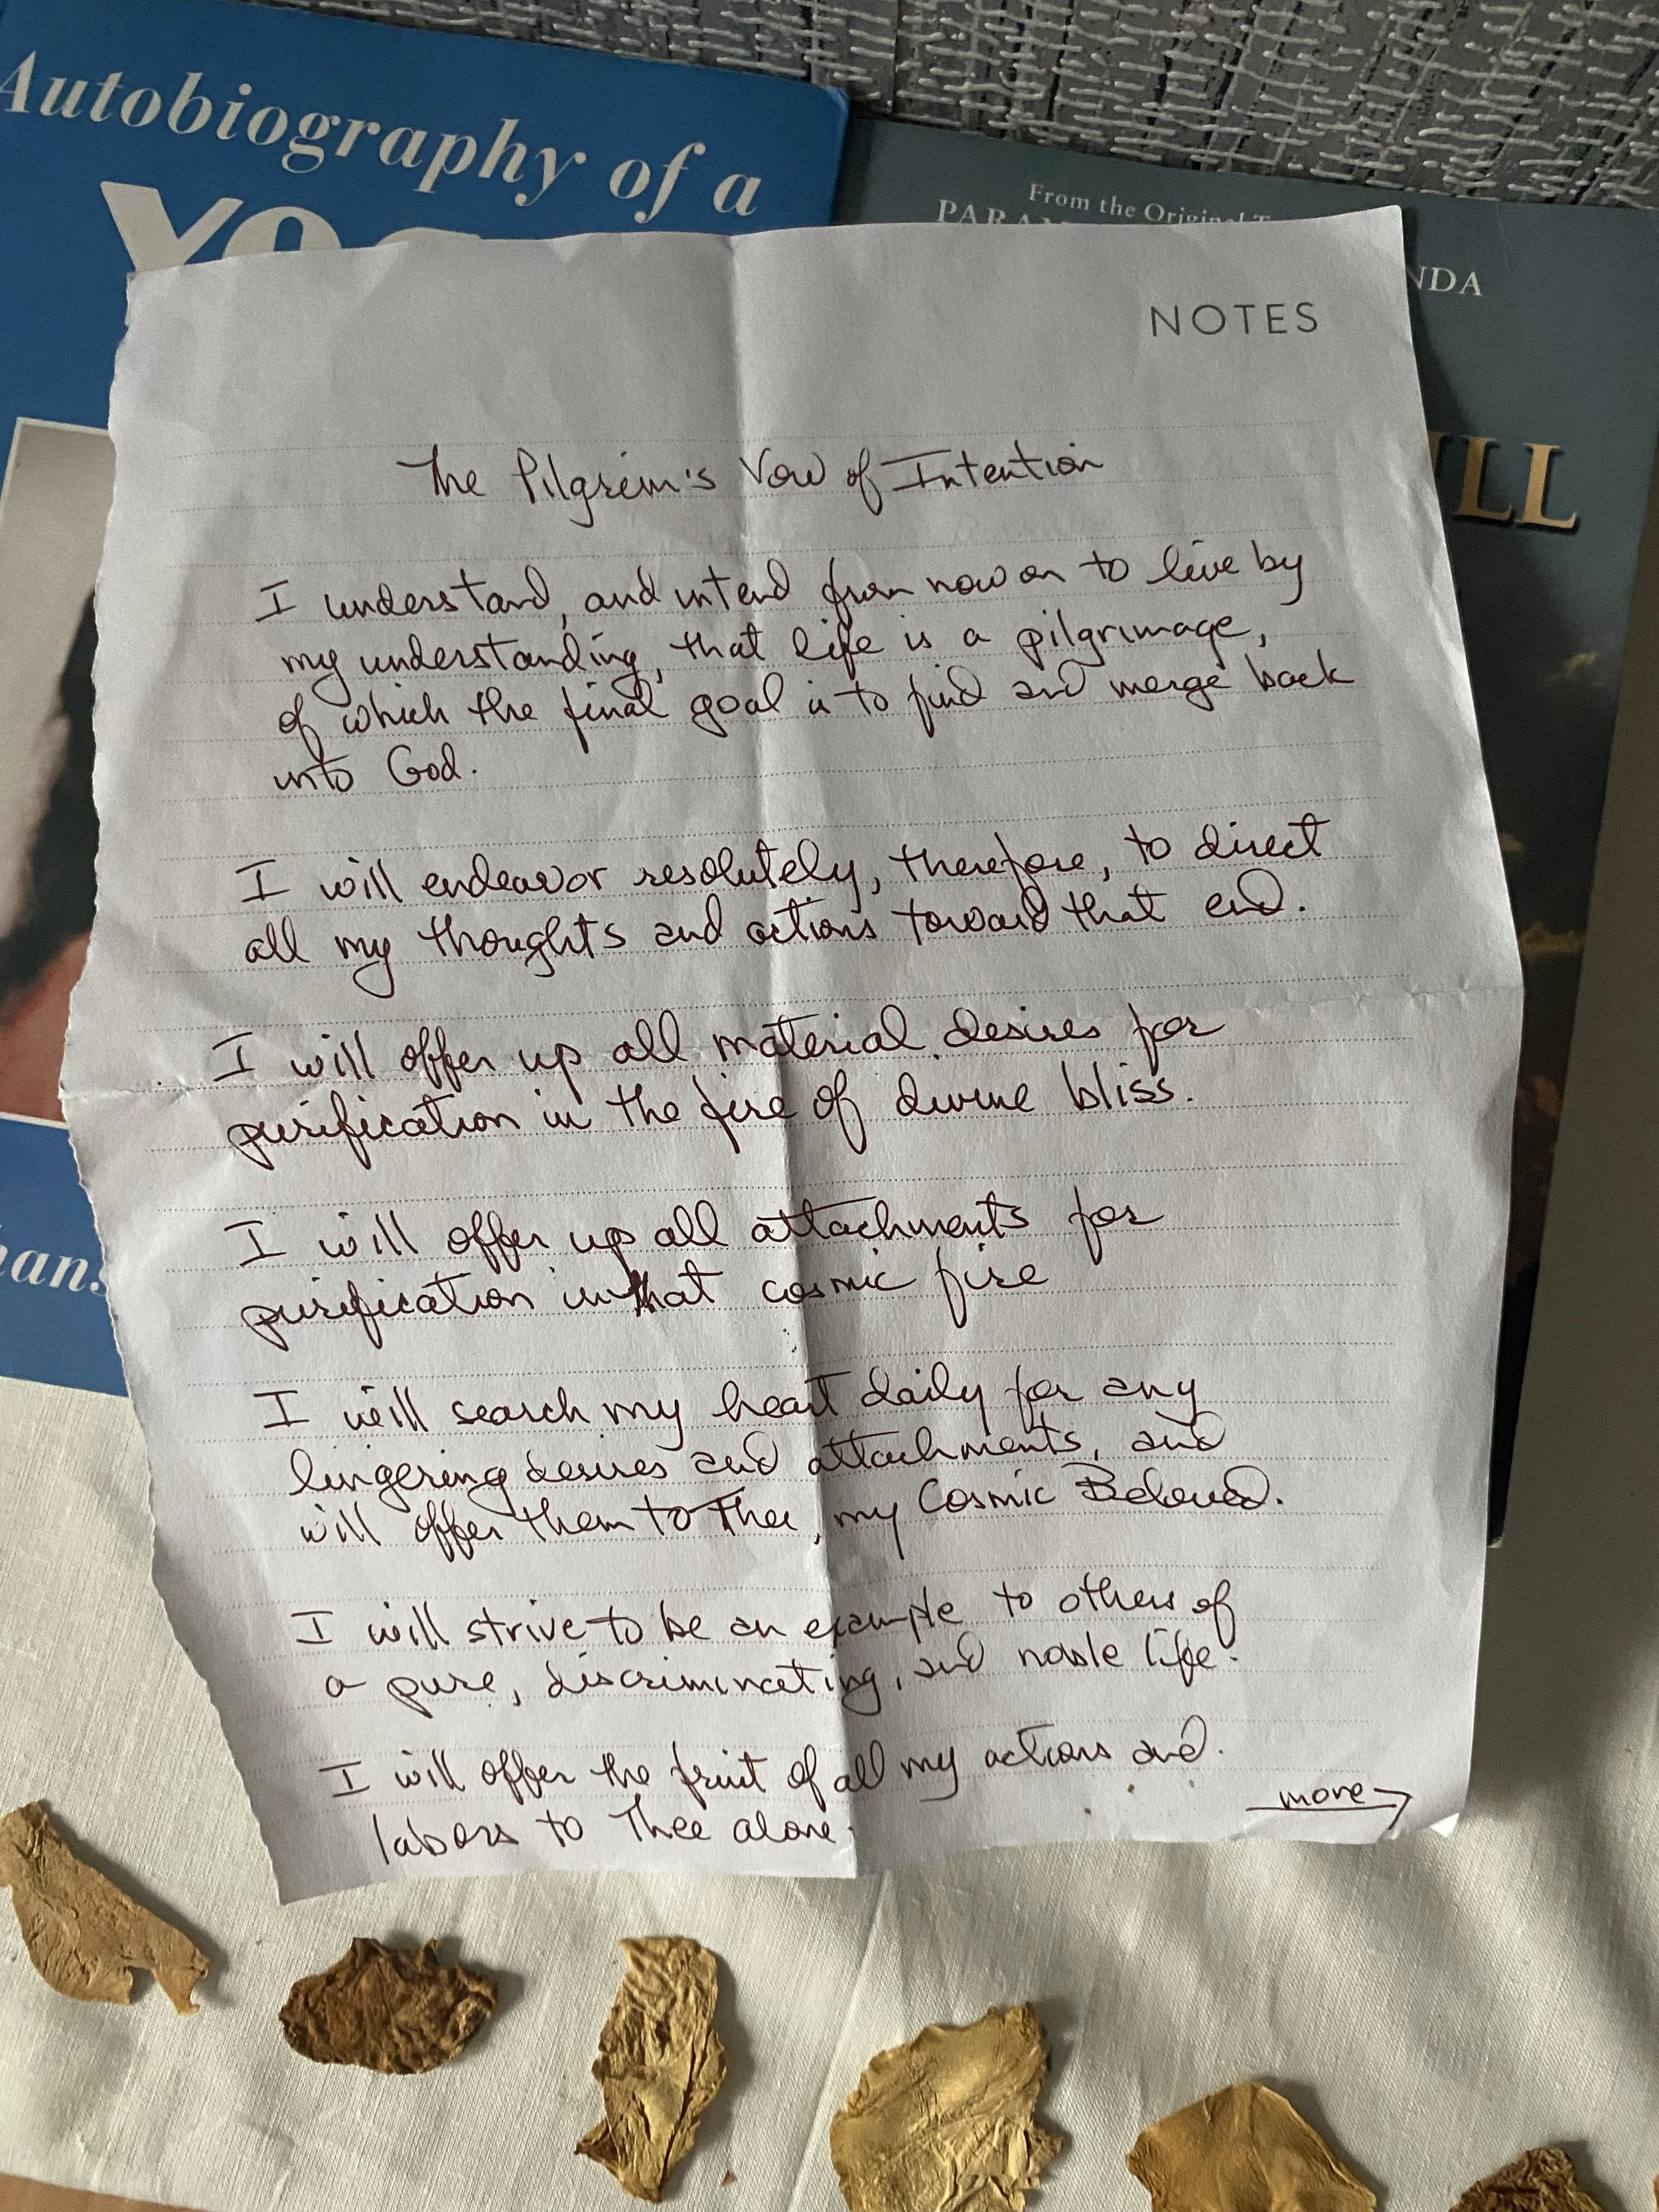 Autobiography of a
From the Original
NDA
ILL
NOTES
The Pilgrim's Vow of Intention
I understand, and intend from now on to live by
my understanding, that life is a pilgrimage,
of which the final goal is to find and merge back
into God.
I will endeavor resolutely, therefore, to direct
all my thoughts and actions toward that end.
I will offer up all material desires for
purification in the fire of divine bliss.
I will offer up all attachments for
purification in that cosmic fire
I will search my heart daily for any
lingering desires and attachments, and
will offer them to Thee, my Cosmic Beloved.
I will strive to be an example to others of
a pure, discriminating, and noble life.
I will offer the fruit of all my actions and
labors to Thee alone.
more →